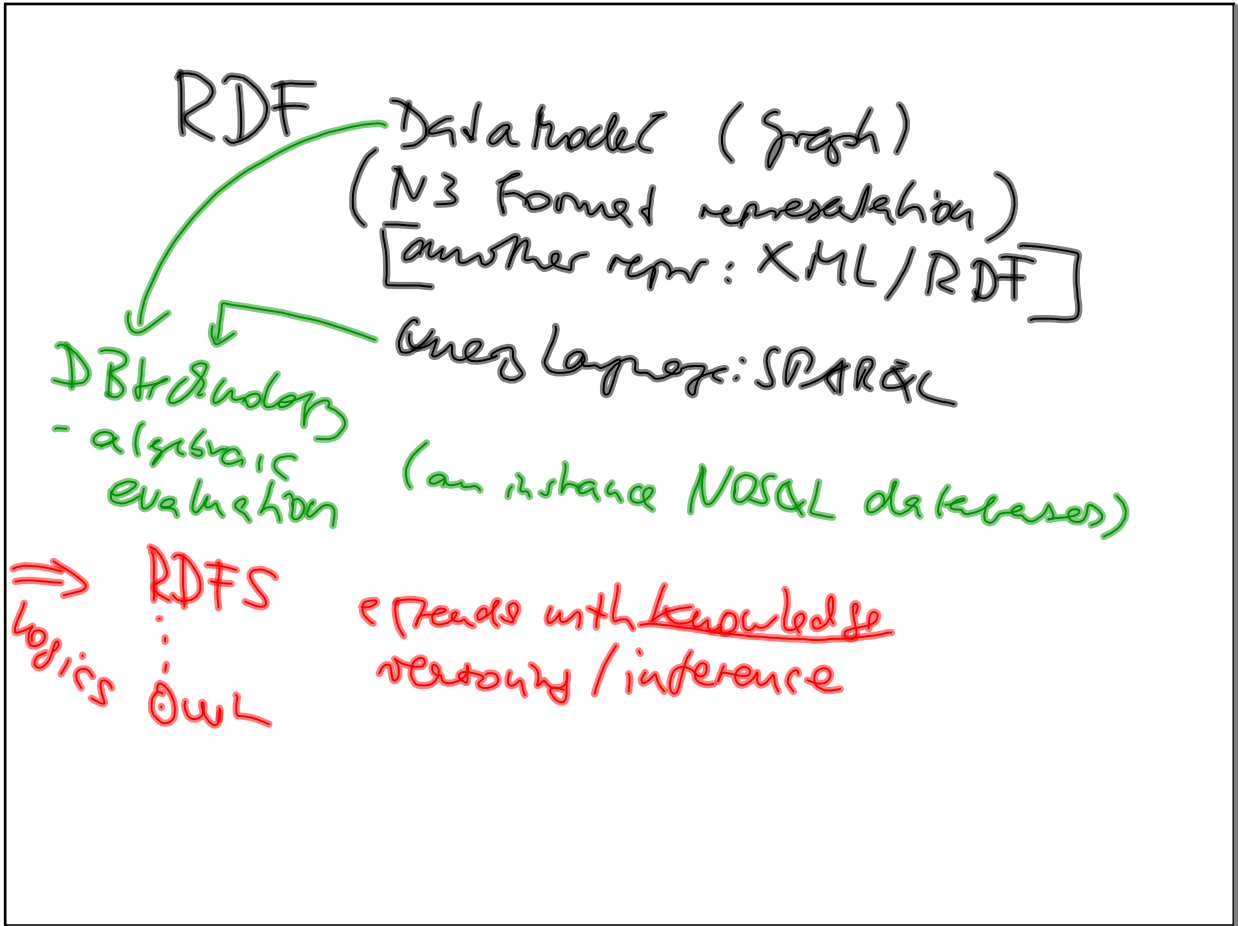 RDF Data Model (graph)
(N3 Format representation)
[another repr: XML/RDF]
Query Language: SPARQL
DB technology
- algebraic
evaluation
(an instance NOSQL databases)
⇒ RDFS
Logics
OWL
extends with knowledge
reasoning / inference